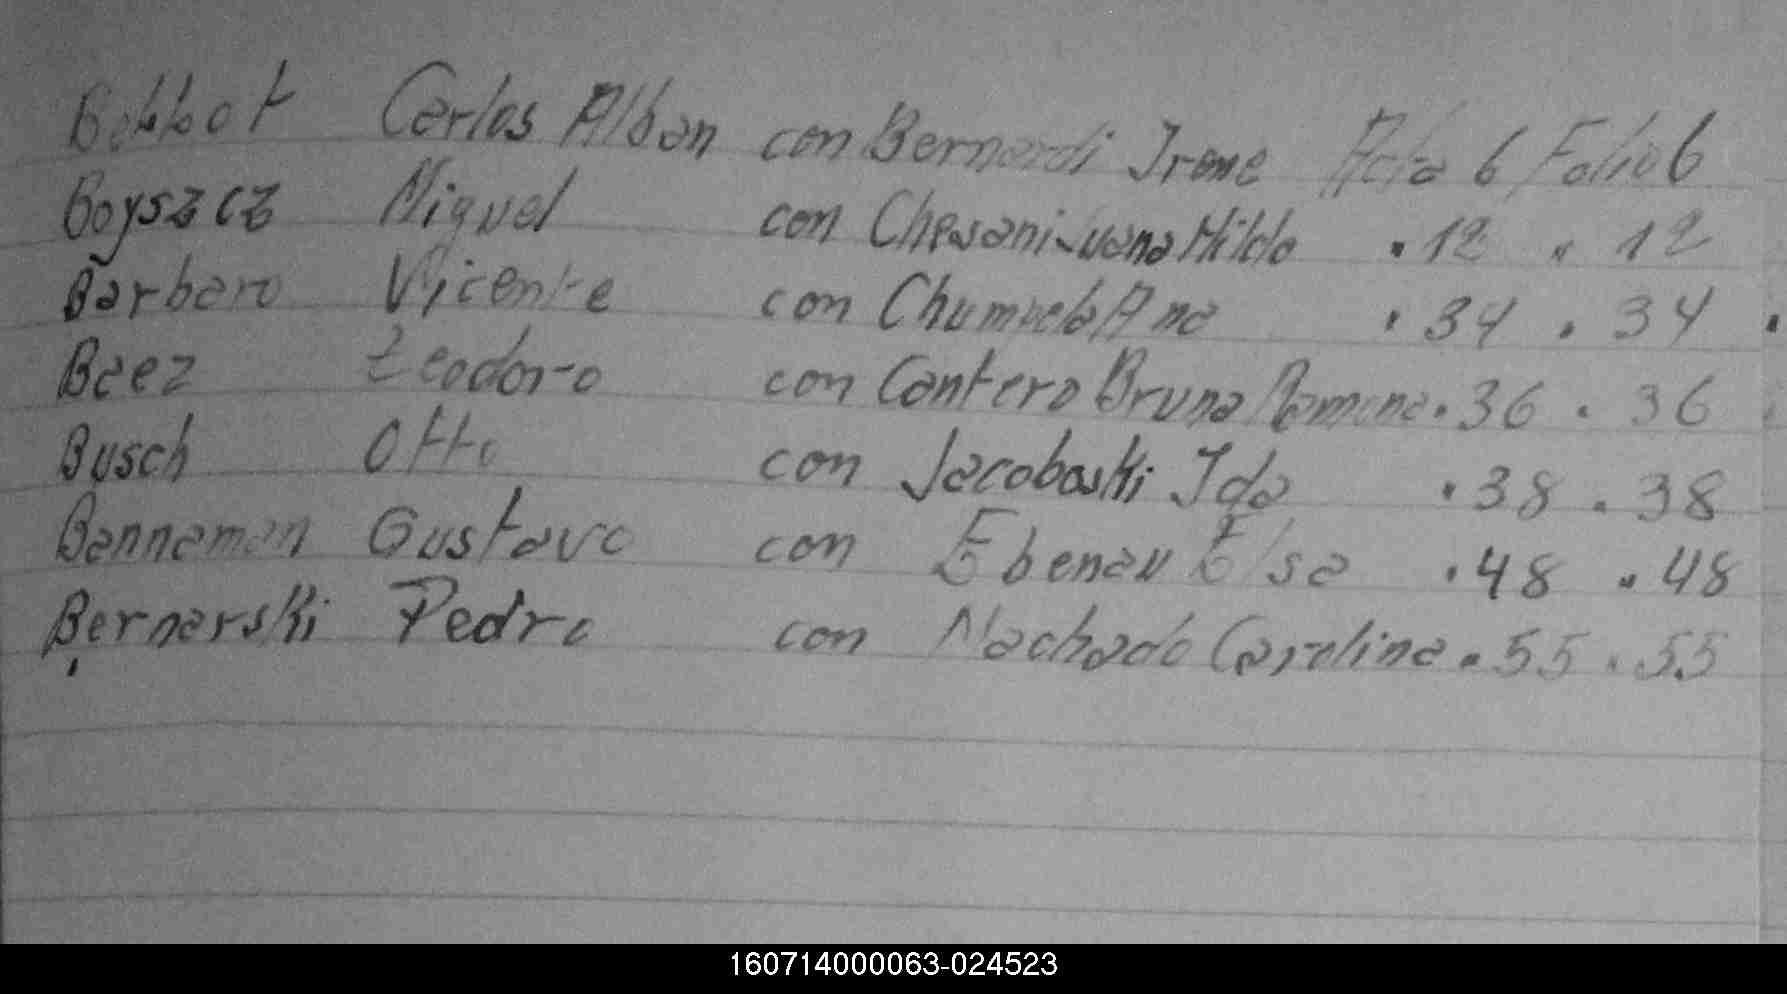 Carlos Alban con Bernardi Irene Acta 6 Folio 6
Boyszcz Miguel con Chesani Juana Hilda . 12 " 12
Barbaro Vicente con Ana . 34 . 34 .
Baez Teodoro con Cantero Bruna Ramona . 36 . 36
Busch Otto con Jacoboski Ida . 38 . 38
Banneman Gustavo con Ebenau Elsa . 48 . 48
Bernarski Pedro con Machado Carolina . 55 . 55
160714000063-024523